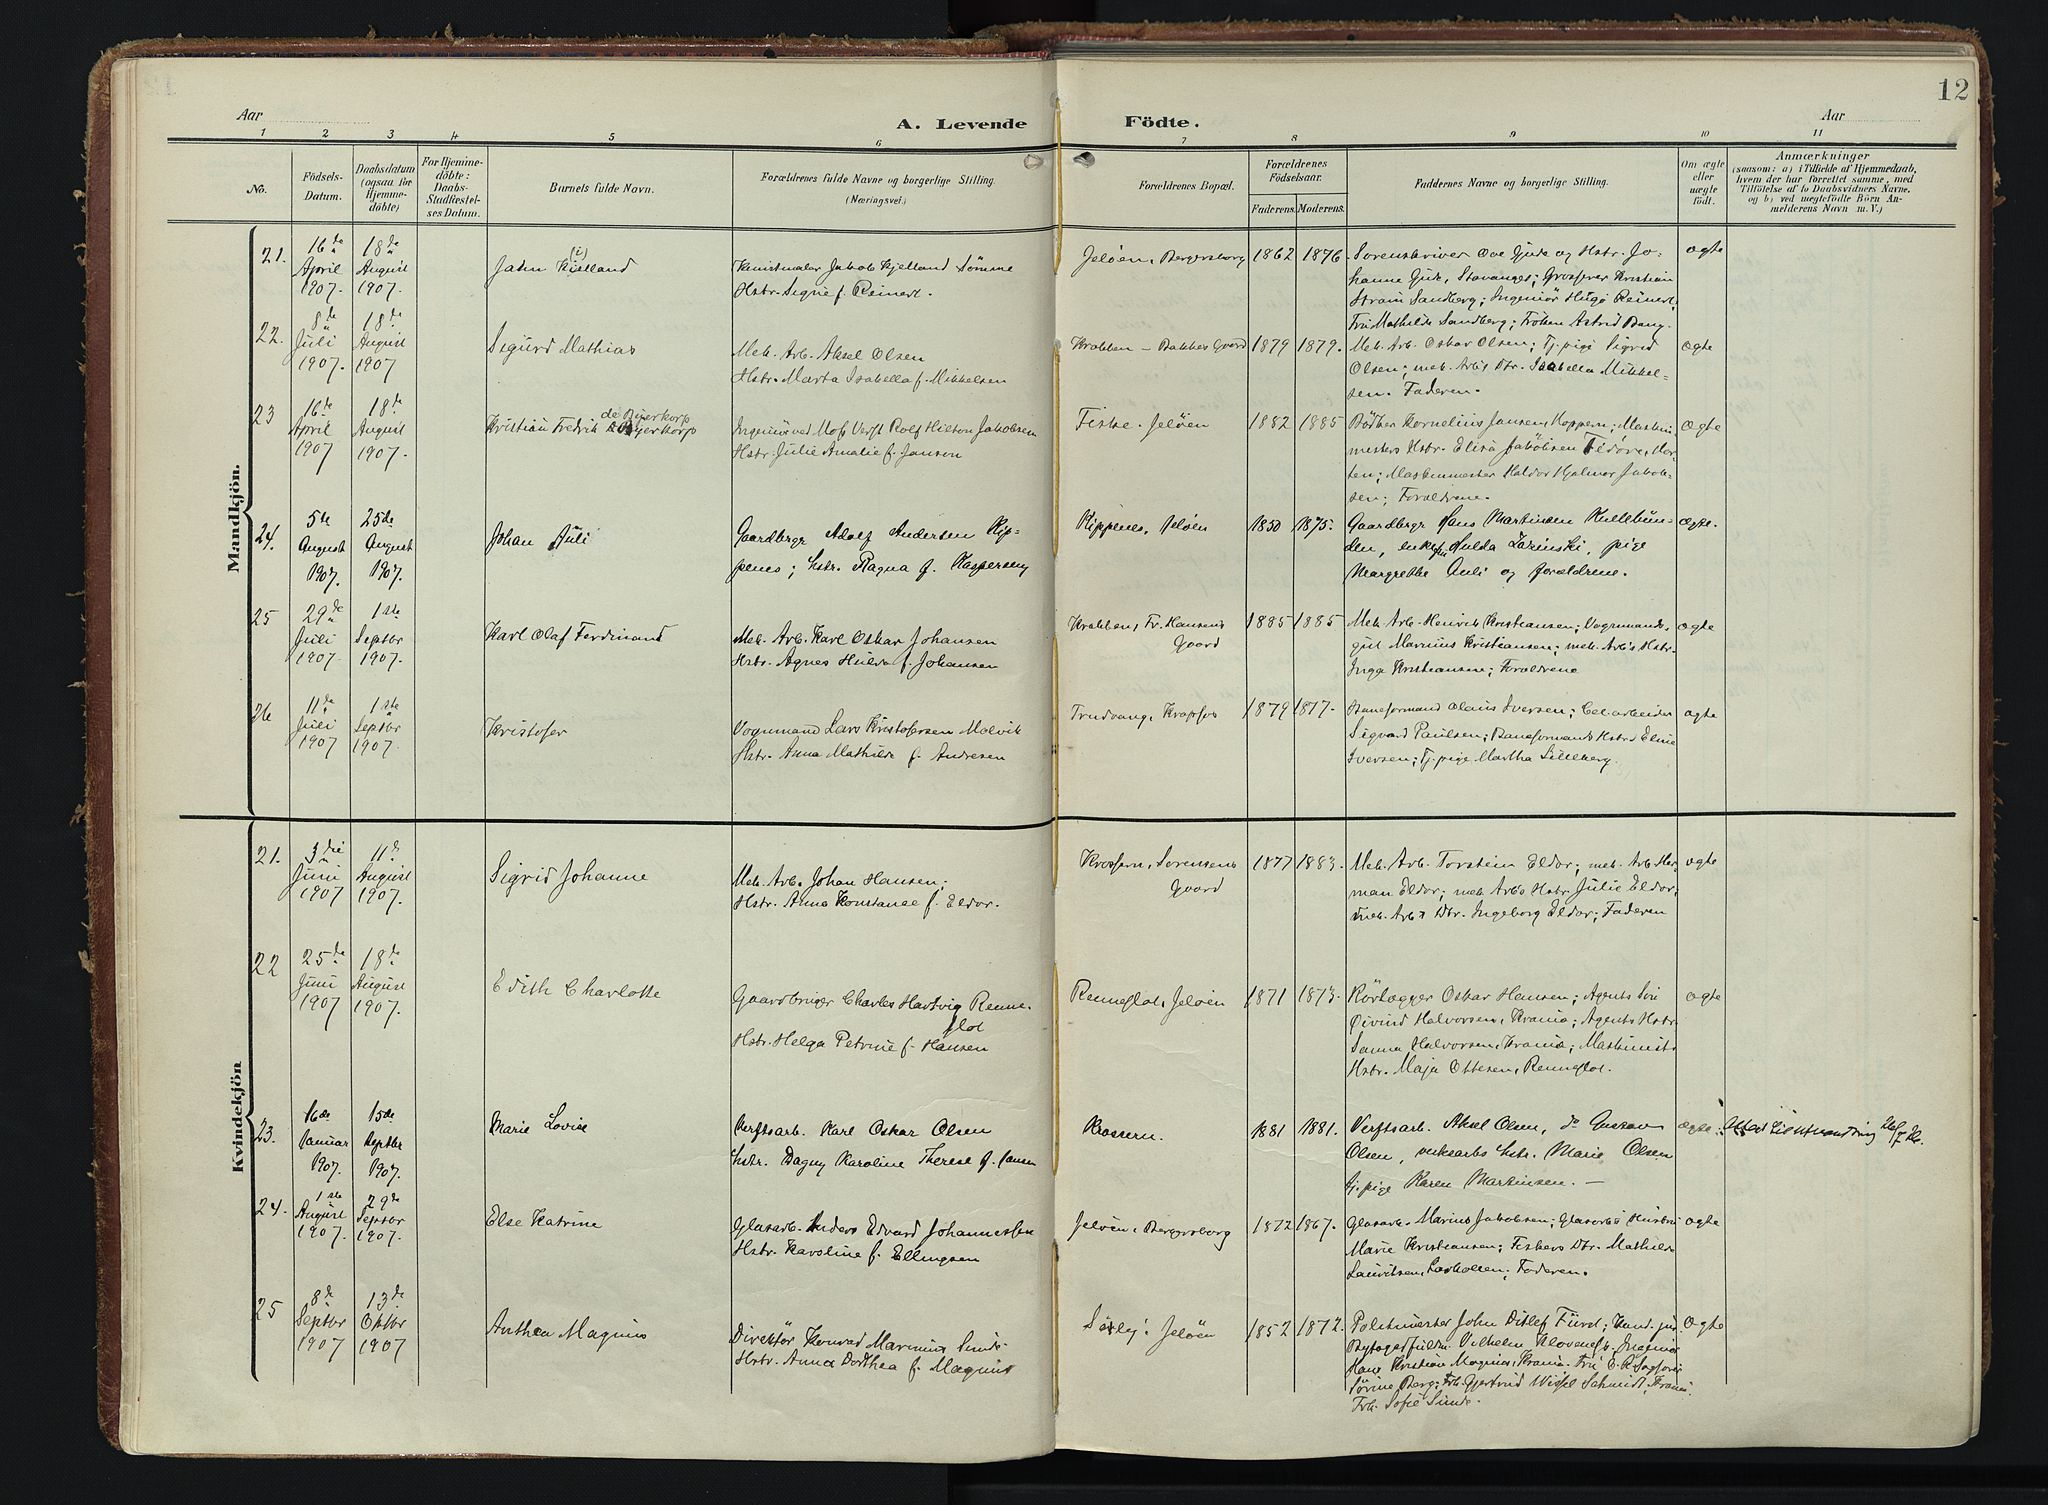 12
Aar
A. Levende
Födte.
Aar
1 2 3 4 5 6 7 8 9 10 11
No.
Födsels-
Datum.
Daabsdatum
(ogsaa for
Hjemme-
döbte)
For Hjemme-
döbte:
Daabs-
Stadfæstel-
ses Datum.
Barnets fulde Navn.
Forældrenes fulde Navne og borgerlige Stilling.
(Næringsvei.)
Forældrenes Bopæl.
Forældrenes
Födselsaar.
Faderens.
Moderens.
Faddernes Navne og borgerlige Stilling.
Om ægte
eller
uægte
födt.
Anmærkninger
(saasom: a) i Tilfælde af Hjemmedaab,
hvem der har forrettet samme, med
Tilföielse af to Daabsvidners Navne,
og b) ved uegtefödte Börn An-
melderens Navn m. V.)
Mandkjön.
21.
16de
April
1907.
18de
August
1907.
Jahn Kielland
Kunstmaler Jakob Kjelland Sömme
Hstr. Signe f. Reinert.
Jelöen, Bergersborg
1862
1876.
Sorenskriver Ove Gude og Hstr. Jo-
hanne Gude, Stavanger; Grosserer Kristian
Strøm Sandberg; Ingeniör Hugo Reinert;
Fru Mathilde Sandberg; Fröken Astrid Bang.
ægte
22.
8de
Juli
1907.
18de
August
1907
Sigurd Mathias
Mek. Arb. Aksel Olsen
Hstr. Marta Isabella f. Mikkelsen
Krabben - Bakkes Gaard
1879
1879.
Mek. Arb. Oskar Olsen; Tj. pige Sigrid
Olsen; mek. Arb's Dtr. Isabella Mikkel-
sen. Faderen.
ægte
23
16de
April
1907
18de
August
1907.
de Bijerkorp
Kristian Fredrik
Ingeniör ved Moss Verft Rolf Hilton Jakobsen
Hstr. Julie Amalie f. Janson
Fiske. Jelöen
1882
1885
Bödker Kornelius Jansen, Koppern; Maskin-
mesters Hstr. Elisa Jakobsen Hor-
ten; Maskinmester Haldor Hjalmar Jakob-
sen; Forældrene.
ægte
24.
5te
August
1907.
25de
August
1907.
Johan Juli
Gaardbrgr Adolf Andersen Kip-
penes; hstr. Ragna f. Kaspersen
Kippenes, Jelöen
1850
1875.
Gaardbrgr Hans Martinsen Kullebun-
den, enkefru Hulda Lazinski, pige
Margrethe Juli og forældrene.
ægte.
25
29de
Juli
1907.
1ste
Septbr
1907.
Karl Olaf Ferdinand
Mek. Arb. Karl Oskar Johansen
Hstr. Agnes Hulda f. Johansen
Krabben, Fr. Hansens
Gaard
1885
1885
Mek. Arb. Henrik Kristiansen; Vognmands-
gut Marinius Kristiansen; mek. Arb's Hstr.
Inga Kristiansen; Forældrene
ægte
26
11de
Juli
1907
1ste
Septbr
1907.
Kristofer
Vognmand Lars Kristofersen Molvik
Hstr. Anna Mathilde f. Andresen
Trudvang, Krapfos
1879
1877.
Baneformand Olaus Iversen; Cel. arbeider
Sigvard Paulsen; Baneformands Hstr. Eline
Iversen; Tj. pige Martha Lilleberg.
ægte
Kvindekjön
21.
3die
Juni
1907
11te
August
1907.
Sigrid Johanne
Mek. Arb. Johan Hansen;
Hstr. Anna Konstance f. Eldor.
Krossern, Sorensens
Gaard
1877
1883.
Mek. Arb. Torstein Eldor; mek. Arb. Her-
man Eldor; mek. Arb's Hstr. Julie Eldor;
mek. Arb's Dtr. Ingeborg Eldor; Faderen
ægte
22
25de
Juni
1907
18de
August
1907.
Edith Charlotte
Gaardbruger Charles Hartvig Renne-
flot
Hstr. Helga Petrine f. Hansen
Renneflot, Jelöen
1871
1873.
Rörlægger Oskar Hansen; Agents Sön
Öivind Halvorsen, Krania; Agents Hstr.
Sanna Halvorsen, Krania; Maskinists
Hstr. Maja Ottesen, Renneflot.
ægte
23.
16de
Januar
1907.
15de
Septbr
1907.
Marie Lovise
Verftsarb. Karl Oskar Olsen
hstr. Dagny Karoline Therese f. Jansen
Krossern.
1881
1881.
Verftsarb. Aksel Olsen, do Gustav
Olsen, verksarbs hstr. Marie Olsen
tj. pige Karen Martinsen. —
ægte.
24.
1ste
August
1907.
29de
Septbr
1907.
Else Katrine
Glasarb. Anders Edvard Johannessen
Hstr. Karoline f. Ellingsen
Jelöen, Bergersborg
1872
1867.
Glasarb. Marius Jakobsen; Glasarbs Hustru
Marie Kristiansen; Fiskers Dtr. Mathilde
Lauritsen, Faderen.
ægte
25
8de
Septbr
1907
13de
Oktbr
1907
Anthea Magnus
Direktör Konrad Marinius Sunde
Hstr. Anna Dorthea f. Magnus
Jelöen
1852
1872.
Politmester John Ditlef Fürst; Kand. jur.
Vilhelm Klovenes; Ingeniör
Hans Kristian Magnus, Krania. Fru
Sörine Berg; Frk. Gjertrud Wissel Schmidt, Krania.
Frk. Sofie Sunde.
ægte